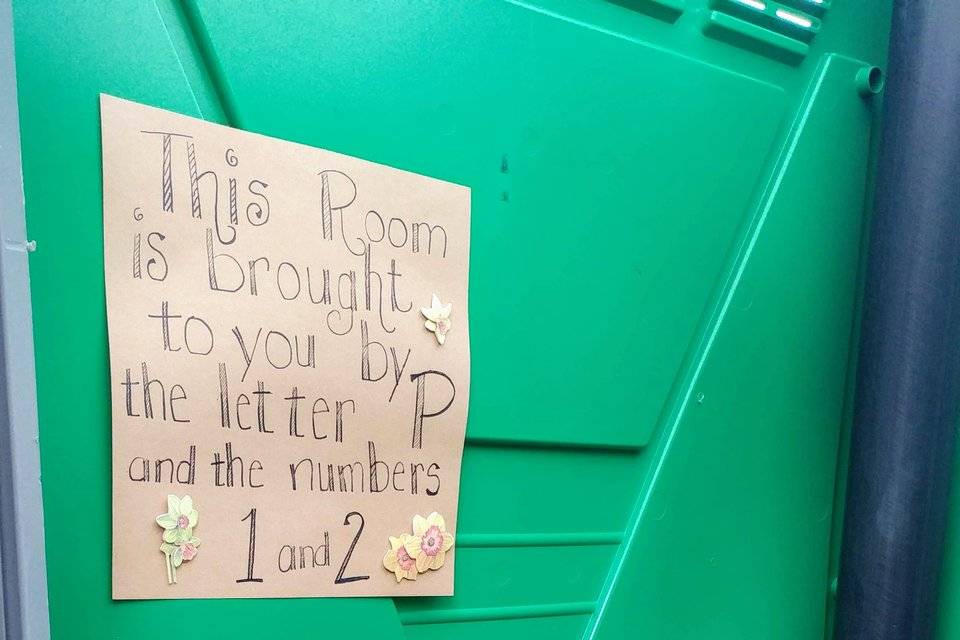 This Room
is brought
to you by
the letter P
and the numbers
1 and 2